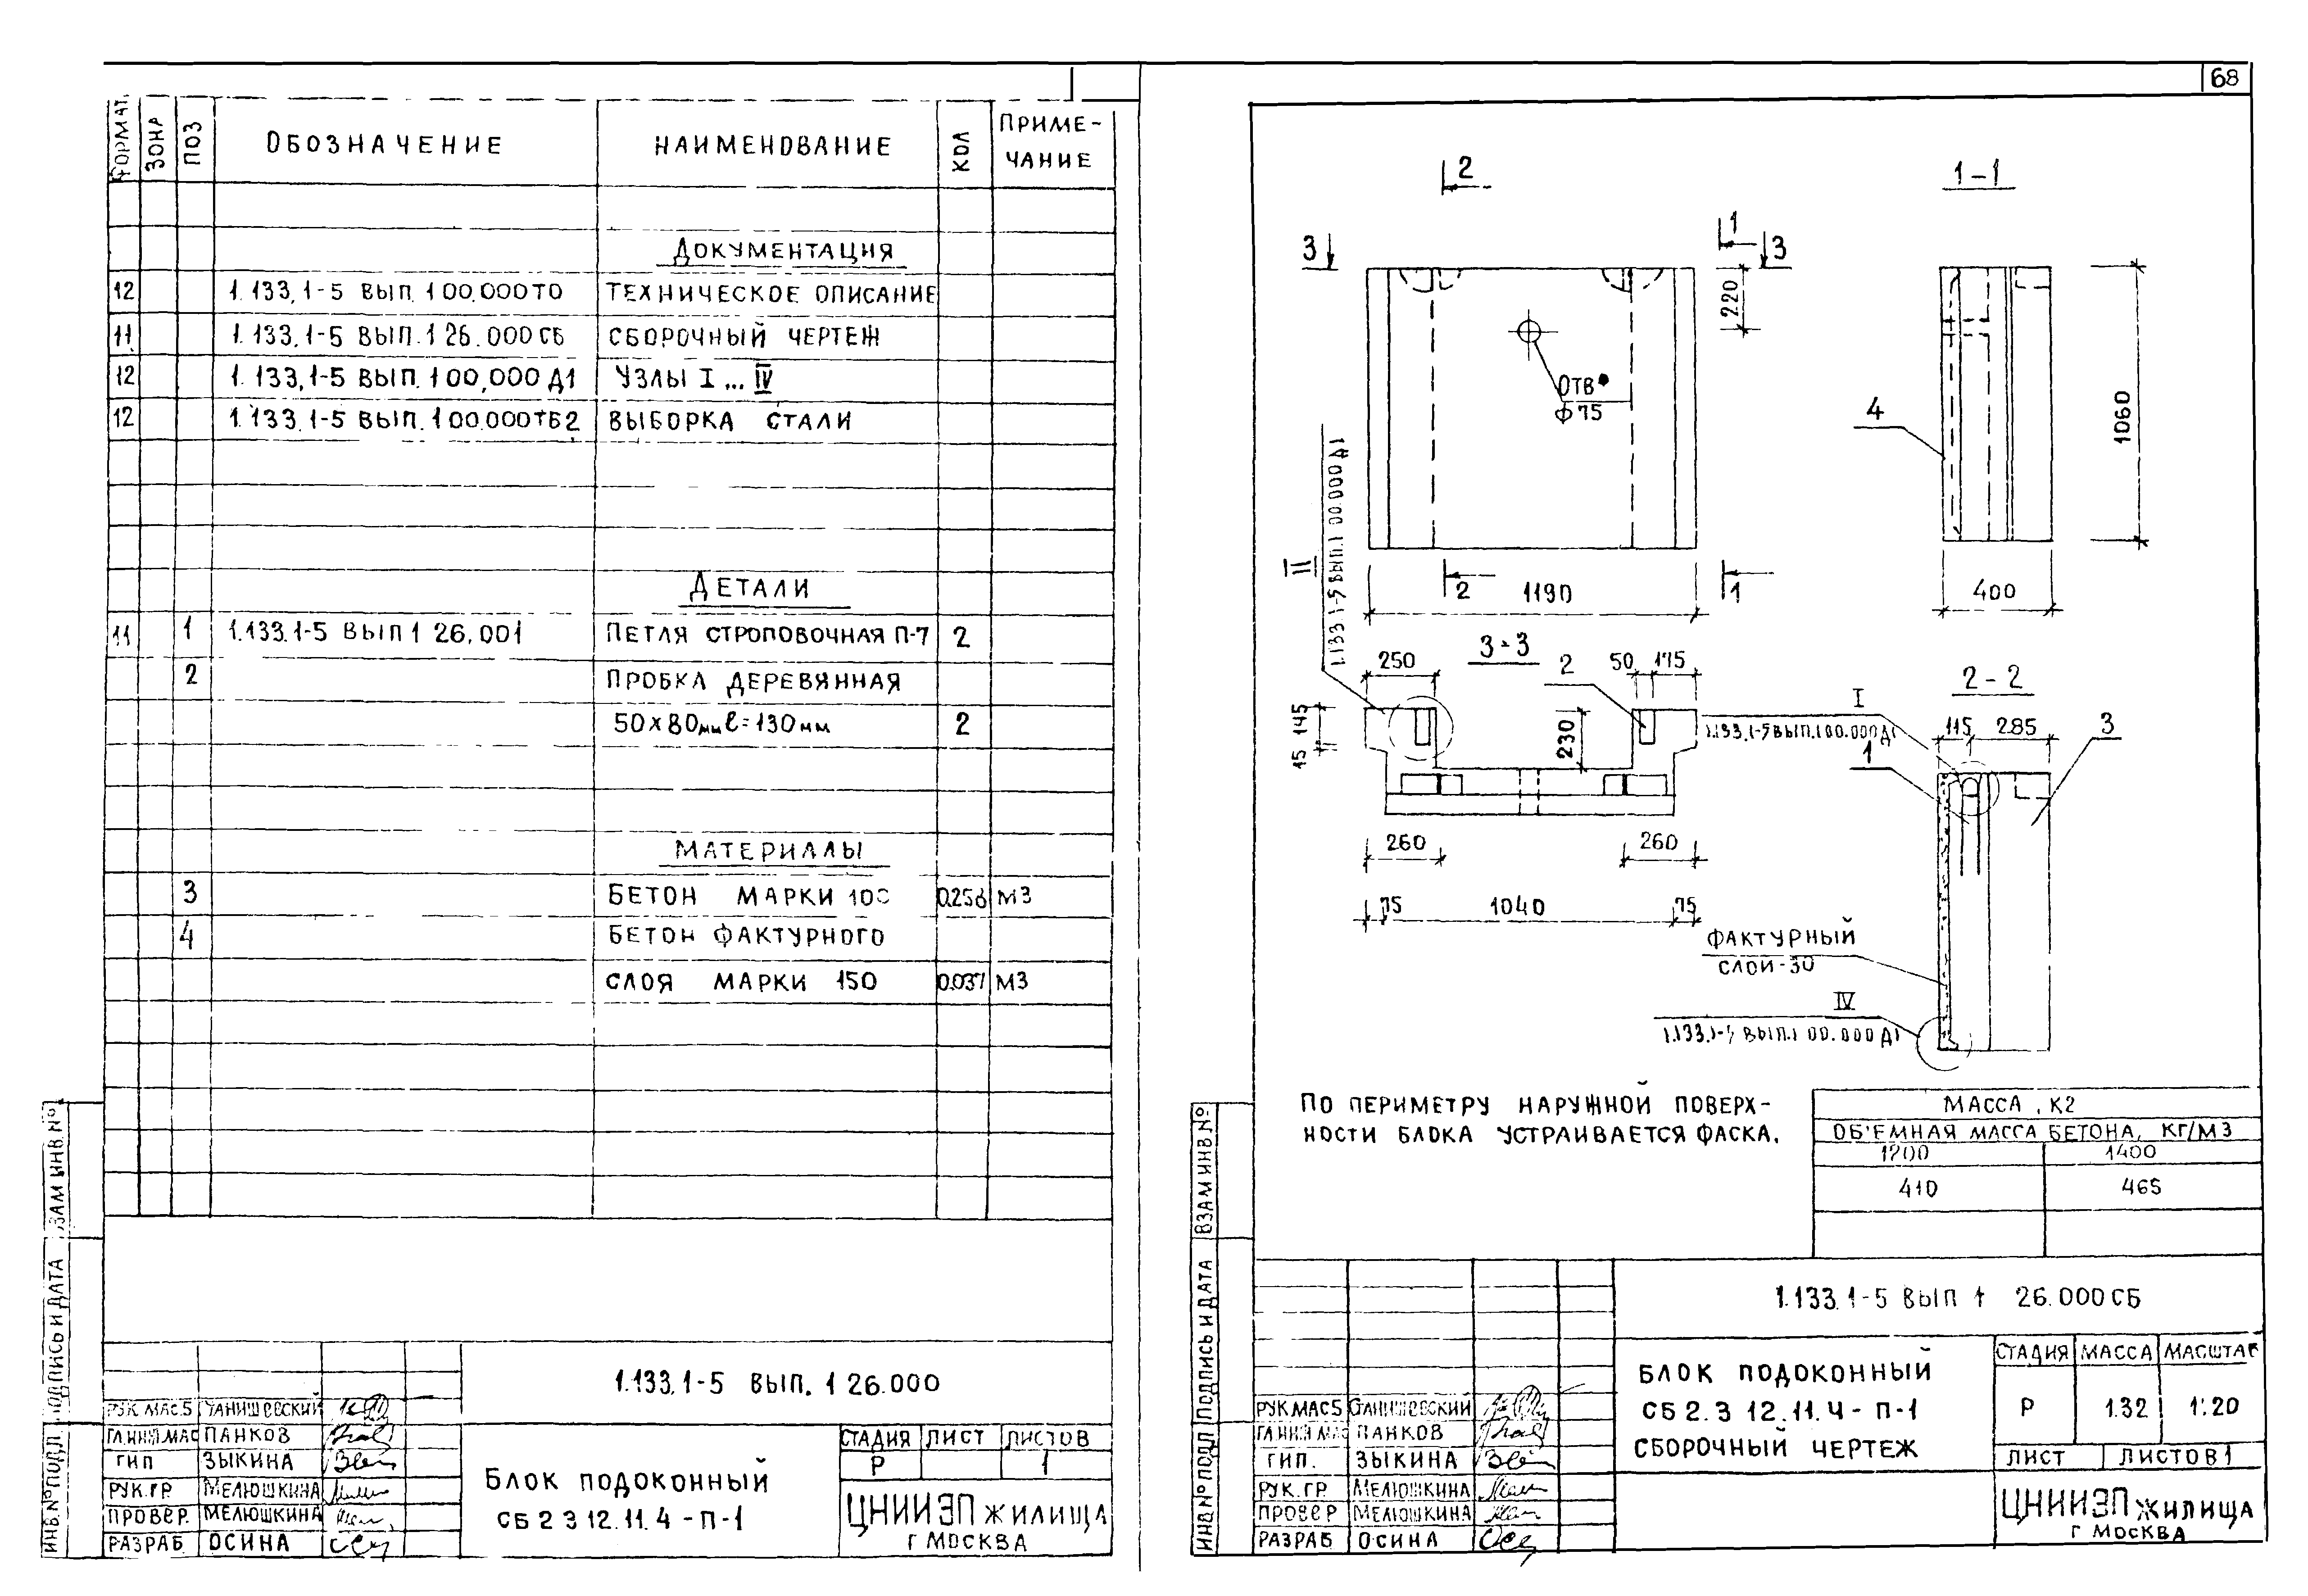 68
ФОРМАТ ЗОНА ПОЗ ОБОЗНАЧЕНИЕ НАИМЕНОВАНИЕ КОЛ ПРИМЕ-
ЧАНИЕ
ДОКУМЕНТАЦИЯ
12 1.133.1-5 ВЫП. 1 00.000ТО ТЕХНИЧЕСКОЕ ОПИСАНИЕ
11 1.133.1-5 ВЫП. 1 26.000СБ СБОРОЧНЫЙ ЧЕРТЕЖ
12 1.133.1-5 ВЫП. 1 00.000 Д1 УЗЛЫ I ... IV
12 1.133.1-5 ВЫП. 1 00.000ТБ2 ВЫБОРКА СТАЛИ
ДЕТАЛИ
11 1 1.133.1-5 ВЫП 1 26.001 ПЕТЛЯ СТРОПОВОЧНАЯ П-7 2
2 ПРОБКА ДЕРЕВЯННАЯ
50 х 80мм ℓ=130мм 2
МАТЕРИАЛЫ
3 БЕТОН МАРКИ 100 М3
4 БЕТОН ФАКТУРНОГО
СЛОЯ МАРКИ 150 0.037 М3
ИНВ.№ ПОДЛ ПОДПИСЬ И ДАТА ВЗАМ ИНВ.№
1.133.1-5 ВЫП. 1 26.000
РУК.МАС5
ГЛ.ИНЖ.МАС ПАНКОВ
ГИП ЗЫКИНА
РУК.ГР. МЕЛЮШКИНА
ПРОВЕР. МЕЛЮШКИНА
РАЗРАБ ОСИНА
БЛОК ПОДОКОННЫЙ
СБ 2 3 12.11.4 - П-1
СТАДИЯ ЛИСТ ЛИСТОВ
Р 1
ЦНИИЭП ЖИЛИЩА
Г МОСКВА
2 2
1 1
3 3
220
ОТВ.
Ф 75
1190
1-1
4
1060
400
II
1.133.1-5 ВЫП.1 00.000 Д1
3-3
250
2
50 175
145
15
230
260 260
75 1040 75
2-2
I
1.133.1-5 ВЫП.1 00.000 Д1
115 285
1
3
ФАКТУРНЫЙ
СЛОЙ-30
IV
1.133.1-5 ВЫП.1 00.000 Д1
ПО ПЕРИМЕТРУ НАРУЖНОЙ ПОВЕРХ-
НОСТИ БЛОКА УСТРАИВАЕТСЯ ФАСКА.
МАССА, КГ
ОБ'ЕМНАЯ МАССА БЕТОНА, КГ/М3
1200 1400
410 465
ИНВ.№ ПОДЛ ПОДПИСЬ И ДАТА ВЗАМ ИНВ.№
1.133.1-5 ВЫП 1 26.000СБ
РУК.МАС5
ГЛ.ИНЖ.МАС ПАНКОВ
ГИП. ЗЫКИНА
РУК.ГР. МЕЛЮШКИНА
ПРОВЕР МЕЛЮШКИНА
РАЗРАБ ОСИНА
БЛОК ПОДОКОННЫЙ
СБ 2.3 12.11.4 - П-1
СБОРОЧНЫЙ ЧЕРТЕЖ
СТАДИЯ МАССА МАСШТАБ
Р 1.32 1:20
ЛИСТ ЛИСТОВ 1
ЦНИИЭП ЖИЛИЩА
Г МОСКВА